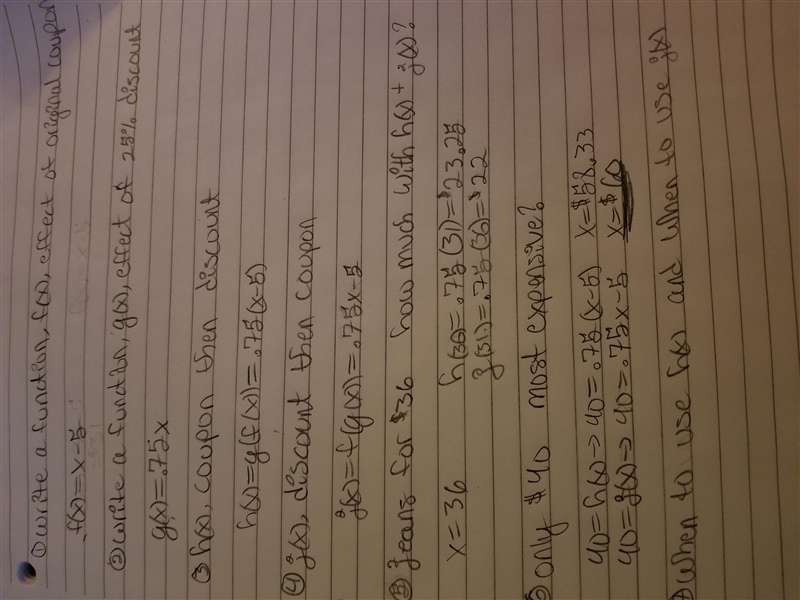 ① write a function, f(x), effect of original coupon
f(x)=x-5
② write a function, g(x), effect of 25% discount
g(x)=.75x
③ h(x), coupon then discount
h(x)=g(f(x))=.75(x-5)
④ j(x), discount then coupon
j(x)=f(g(x))=.75x-5
⑤ Jeans for $36 how much with h(x) + j(x)?
x=36 h(36)=.75(31)=$23.25
j(31)=.75(36)=$22
only $40 most expensive?
40=h(x)→40=.75(x-5) x=$58.33
40=j(x)→40=.75x-5 x=$60
when to use h(x) and when to use j(x)